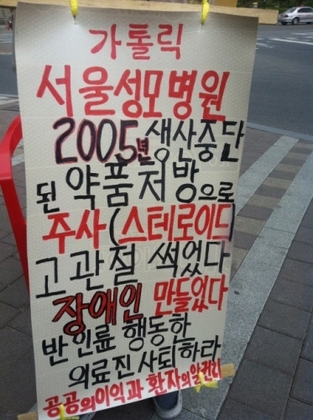 가톨릭
서울성모병원
2005년 생산중단
된 약품처방으로
주사(스테로이드)
고관절 썩었다
장애인 만들었다
반인륜 행동한
의료진 사퇴하라
공공의이익과 환자의알권리